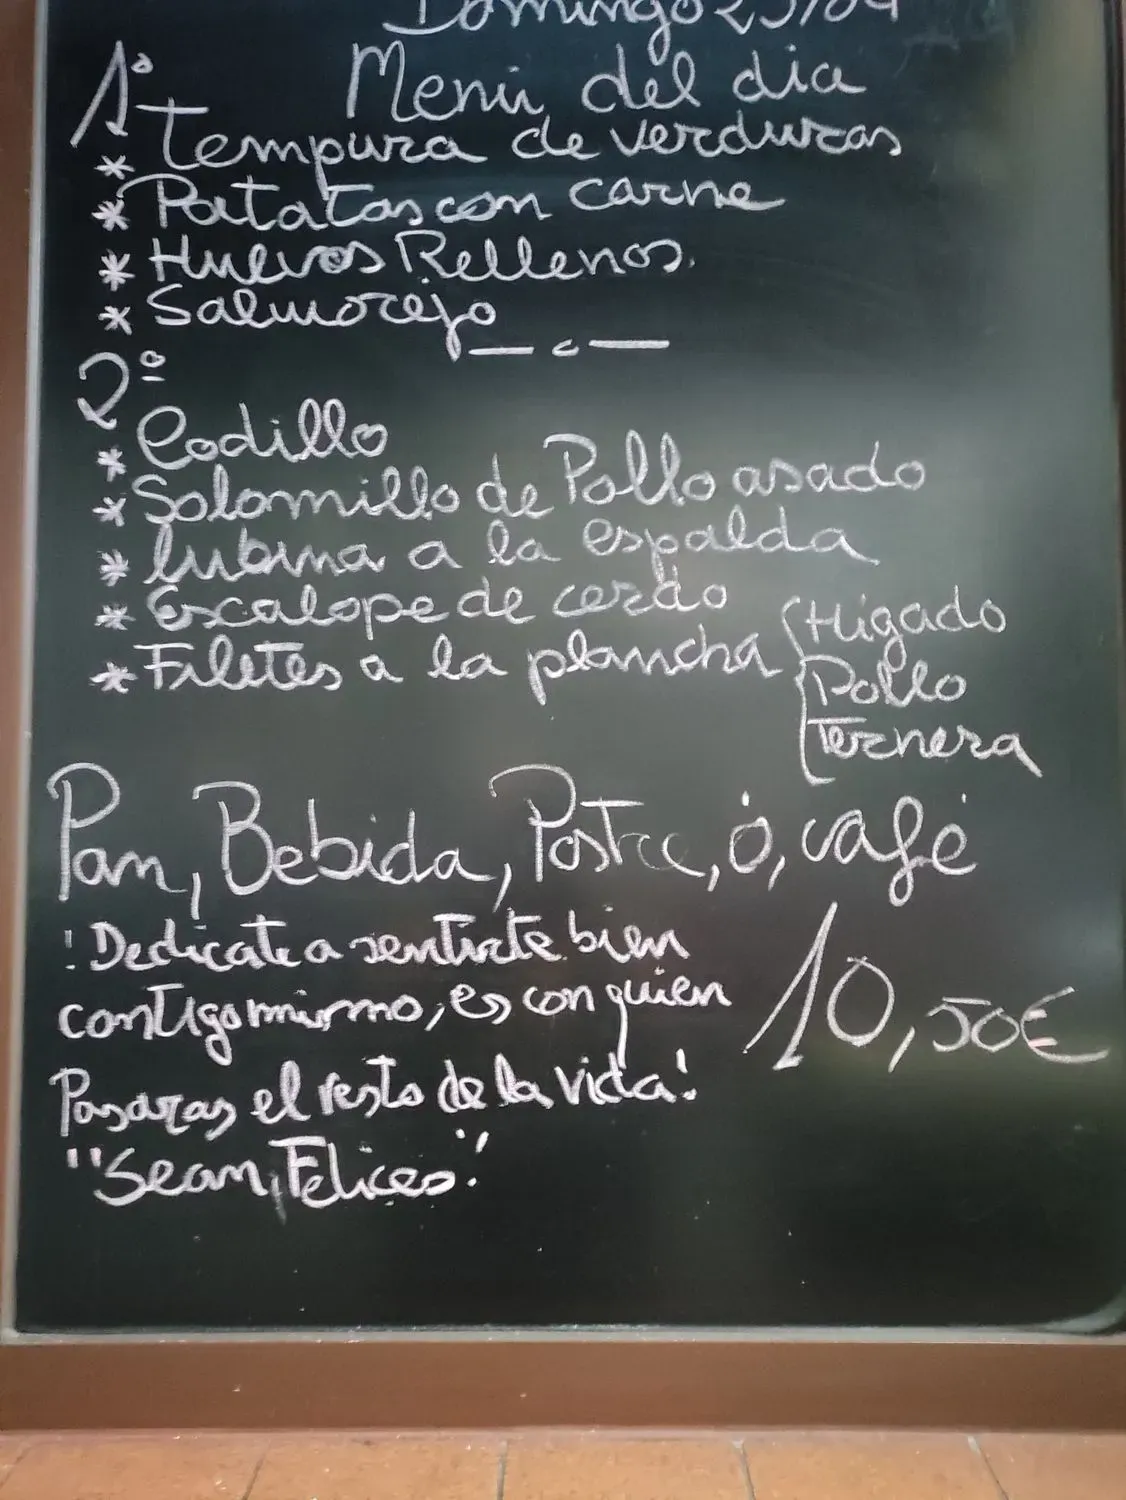 Domingo
Menú del dia
1º
* Tempura de verduras
* Patatas con carne
* Huevos Rellenos.
* Salmorejo
2º
* Codillo
* Solomillo de Pollo asado
* lubina a la espalda
* Escalope de cerdo
* Filetes a la plancha { Higado
Pollo
Ternera
Pan, Bebida, Postre, ó, café
! Dedicate a sentirte bien
contigo mismo, es con quien
Pasaras el resto de la vida!
10,50€
"Sean, Felices."